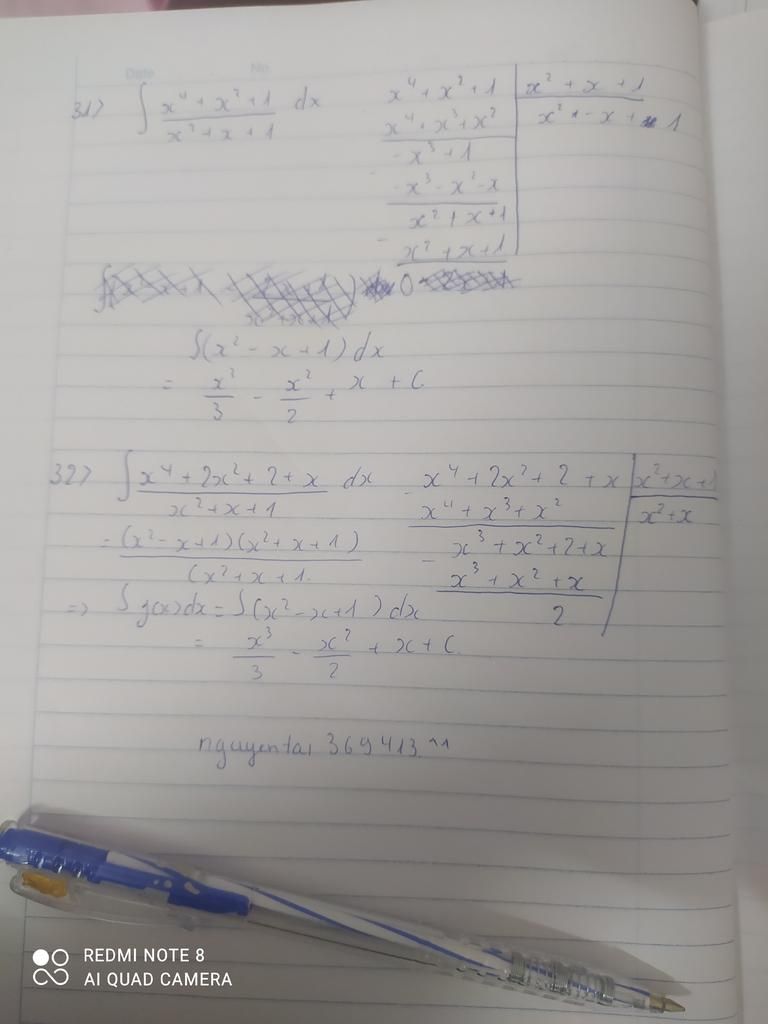 Date No
31) ∫ x⁴ + x² + 1 / x² + x + 1 dx
x⁴ + x² + 1 | x² + x + 1
x⁴ + x³ + x² | x² + - x + 1
- x³ + 1
- x³ - x² - x
x² + x + 1
- x² + x + 1
0
∫(x² - x + 1) dx
= x³/3 - x²/2 + x + C
32) ∫ x⁴ + 2x² + 2 + x / x² + x + 1 dx
- x⁴ + 2x² + 2 + x | x² + x + 1
x⁴ + x³ + x² | x² + x
- x³ + x² + 2 + x
x³ + x² + x
2
= (x² - x + 1)(x² + x + 1) / (x² + x + 1.
=> ∫ f(x) dx = ∫(x² - x + 1) dx
= x³/3 - x²/2 + x + C.
nguyentai 369413 ^1
REDMI NOTE 8
AI QUAD CAMERA